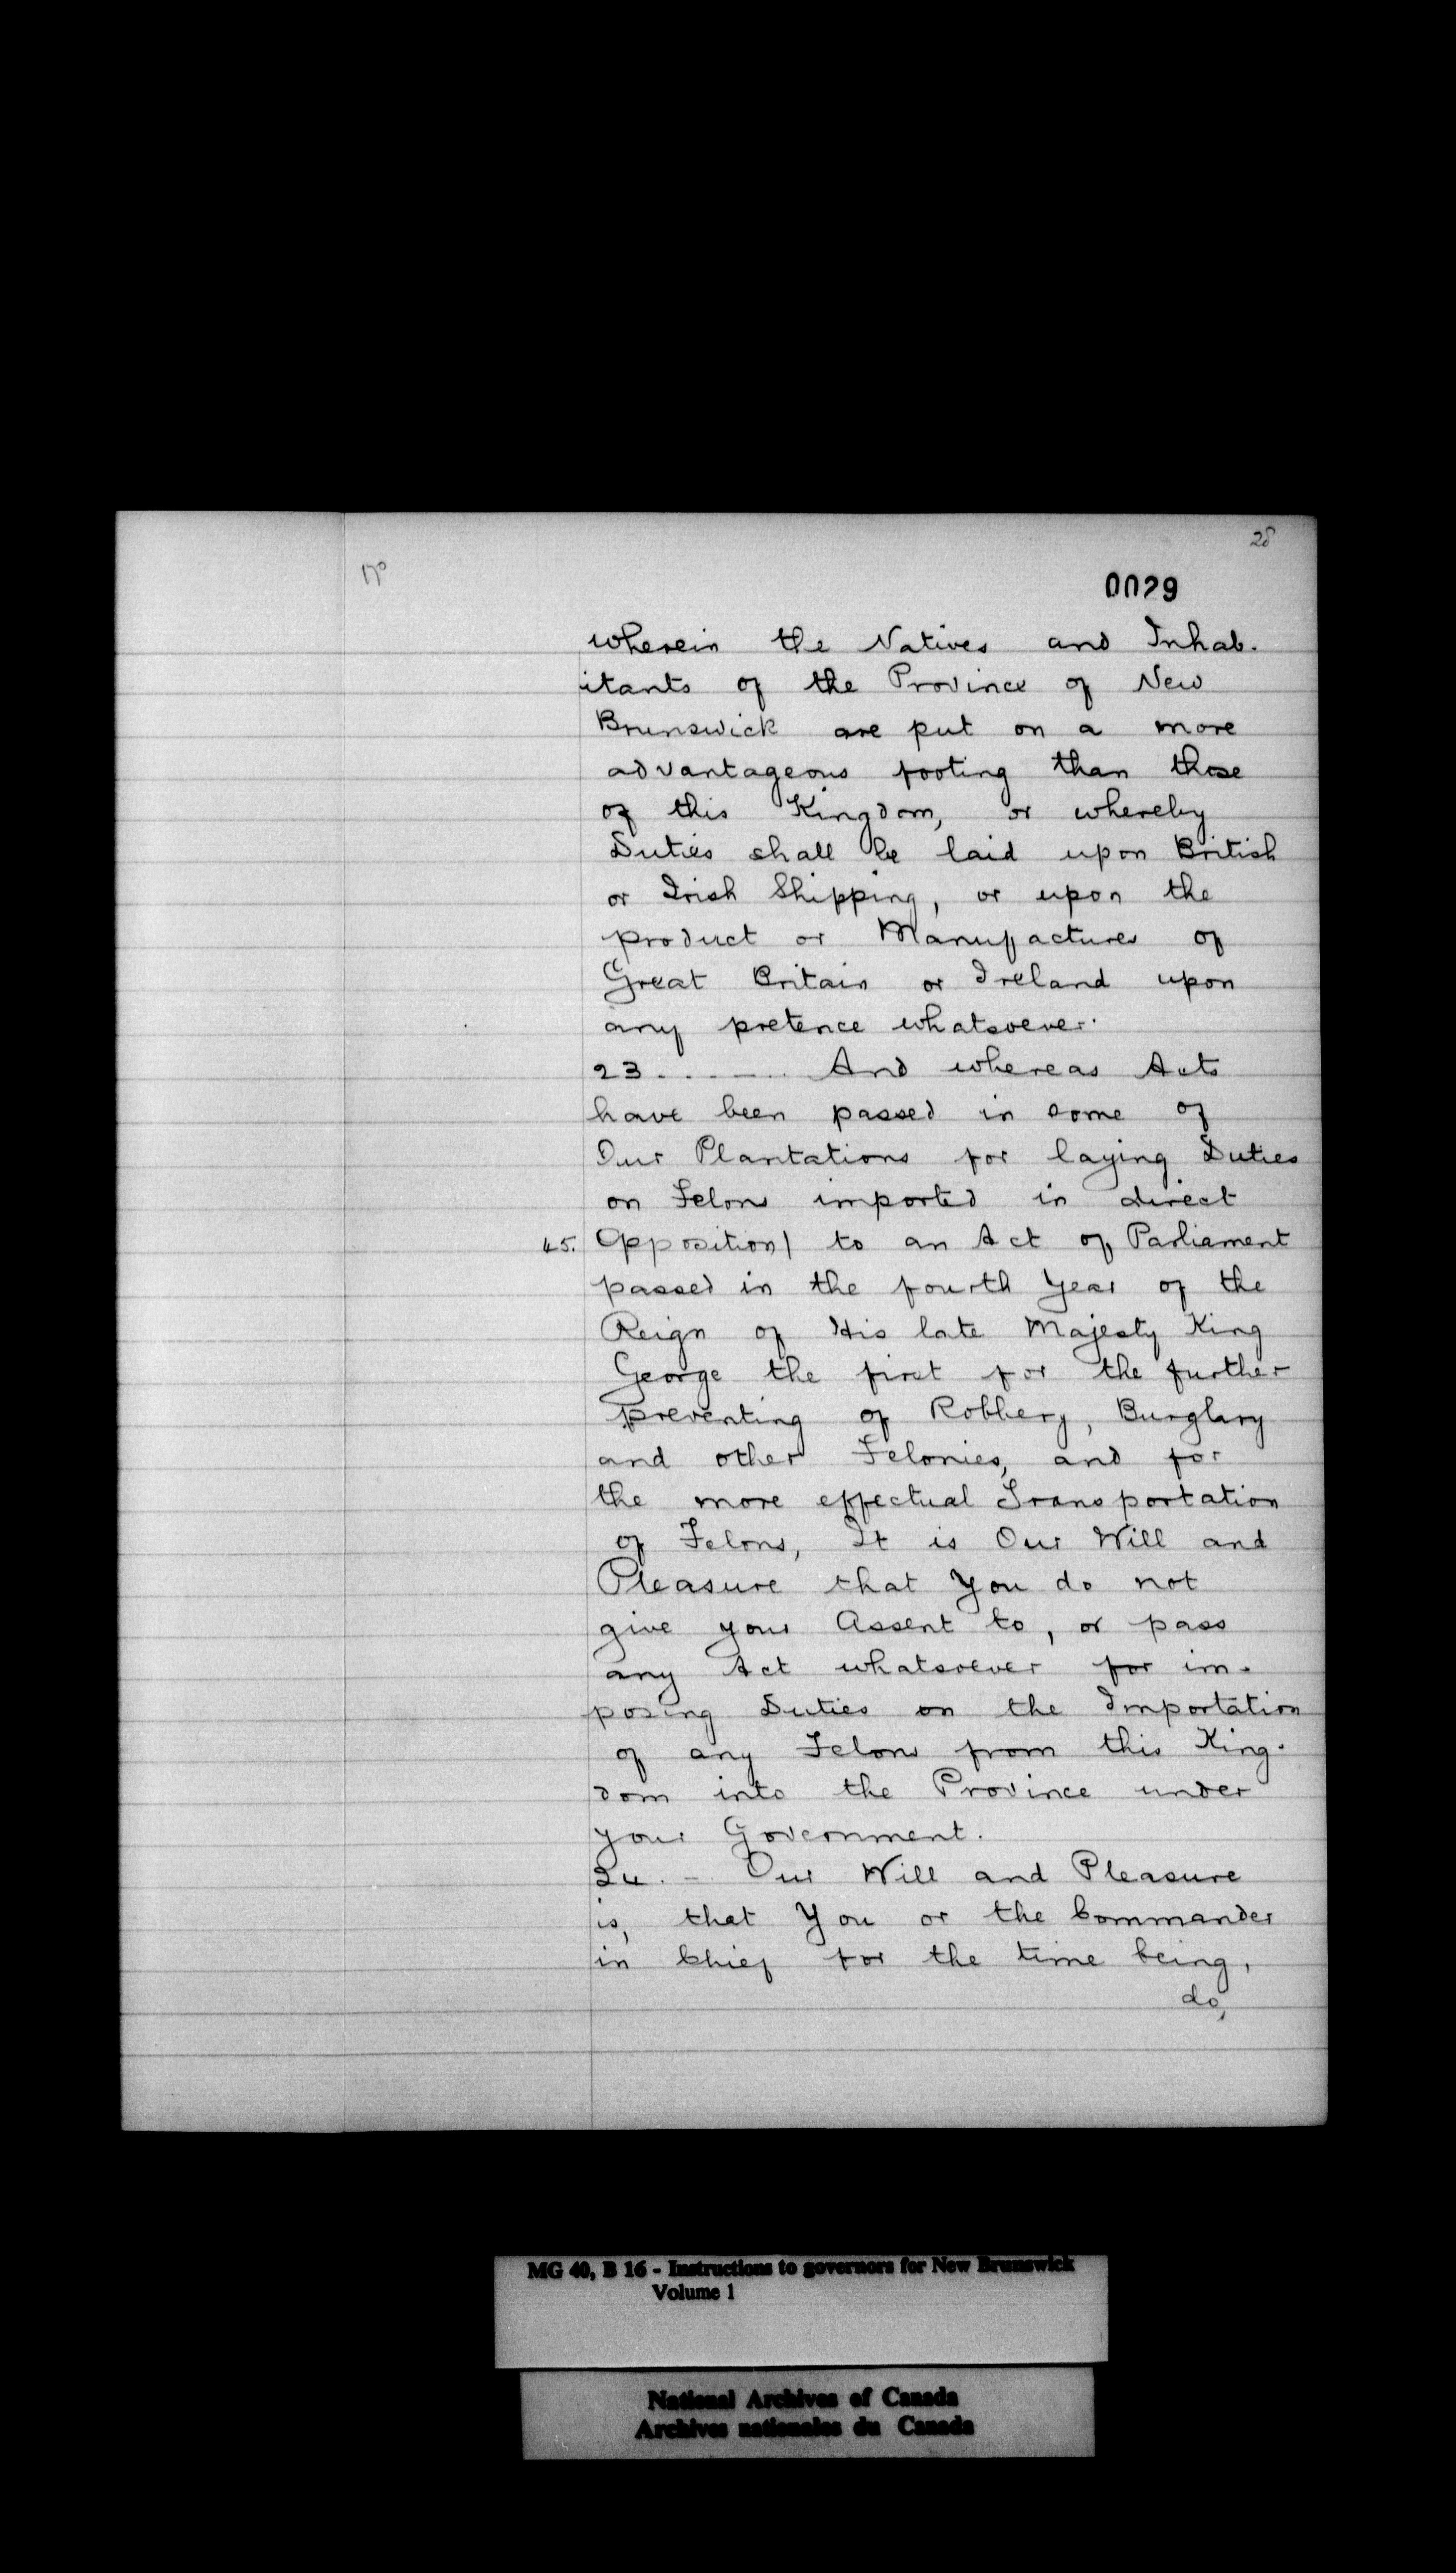 28
0029
wherein the Natives and Inhab-
itants of the Province of New
Brunswick are put on a more
advantageous footing than those
of this Kingdom, or whereby
Duties shall be laid upon British
or Irish Shipping, or upon the
product or Manufactures of
Great Britain or Ireland upon
any pretence whatsoever.
23. . . - - . And whereas Acts
have been passed in some of
Our Plantations for laying Duties
on Felons imported in direct
45. Opposition/ to an Act of Parliament
passed in the fourth Year of the
Reign of His late Majesty King
George the first for the further
preventing of Robbery, Burglary
and other Felonies, and for
the more effectual Transportation
of Felons, It is Our Will and
Pleasure that You do not
give your Assent to, or pass
any Act whatsoever for im-
posing Duties on the Importation
of any Felons from this King-
dom into the Province under
your Government.
24. - Our Will and Pleasure
is, that You or the Commander
in Chief for the time being,
do,
MG 40, B 16 - Instructions to governors for New Brunswick
Volume 1
National Archives of Canada
Archives nationales du Canada